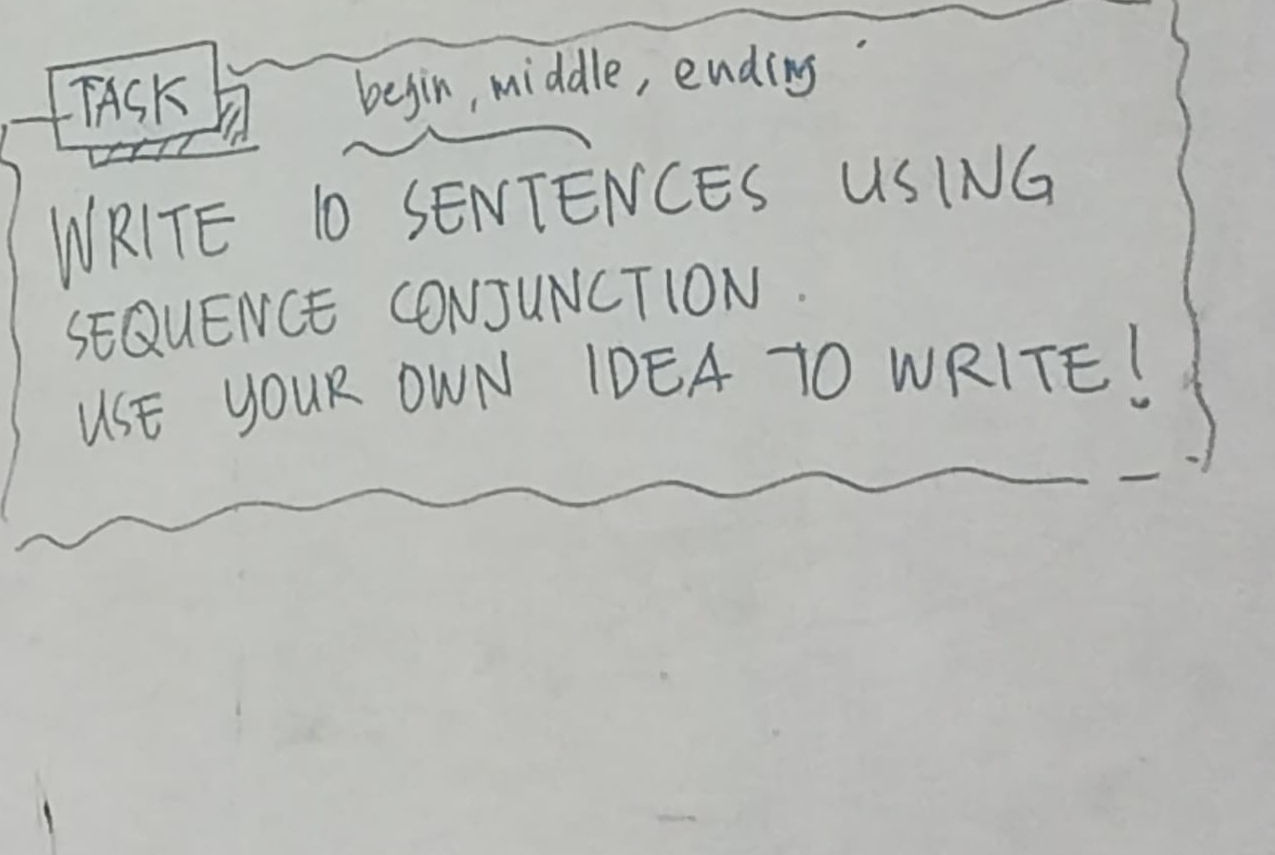 TASK
begin, middle, ending
WRITE 10 SENTENCES USING
SEQUENCE CONJUNCTION.
USE YOUR OWN IDEA TO WRITE!